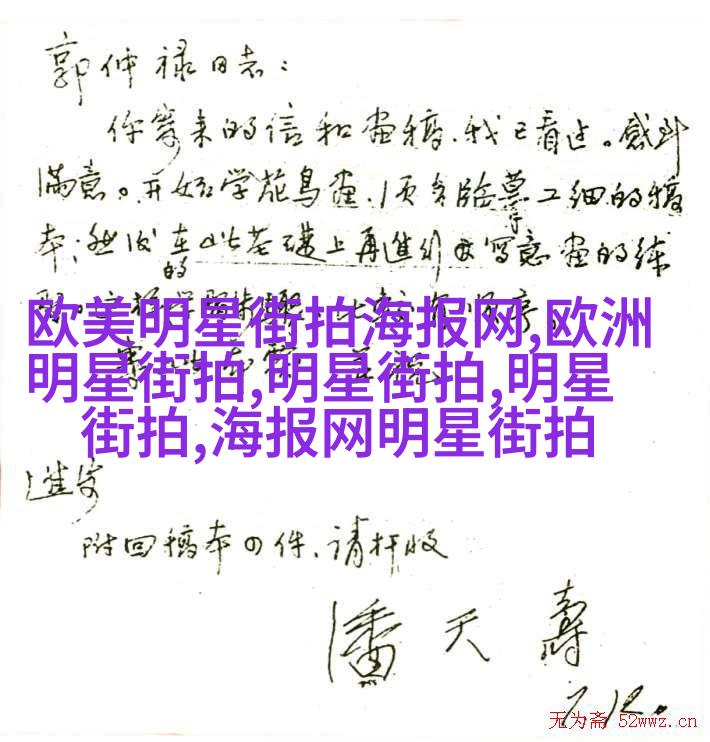 郭仲禄同志：
你寄来的信和画稿，我已看过。感到
满意。开始学花鸟画，须多临摹工细的稿
本；然后在此基础上再进行写意画的练
的
欧美明星街拍海报网,欧洲
明星街拍,明星街拍,明星
街拍,海报网明星街拍
进步
附回稿本四件，请检收
潘天寿
7.12.
无为斋 52wwz.cn